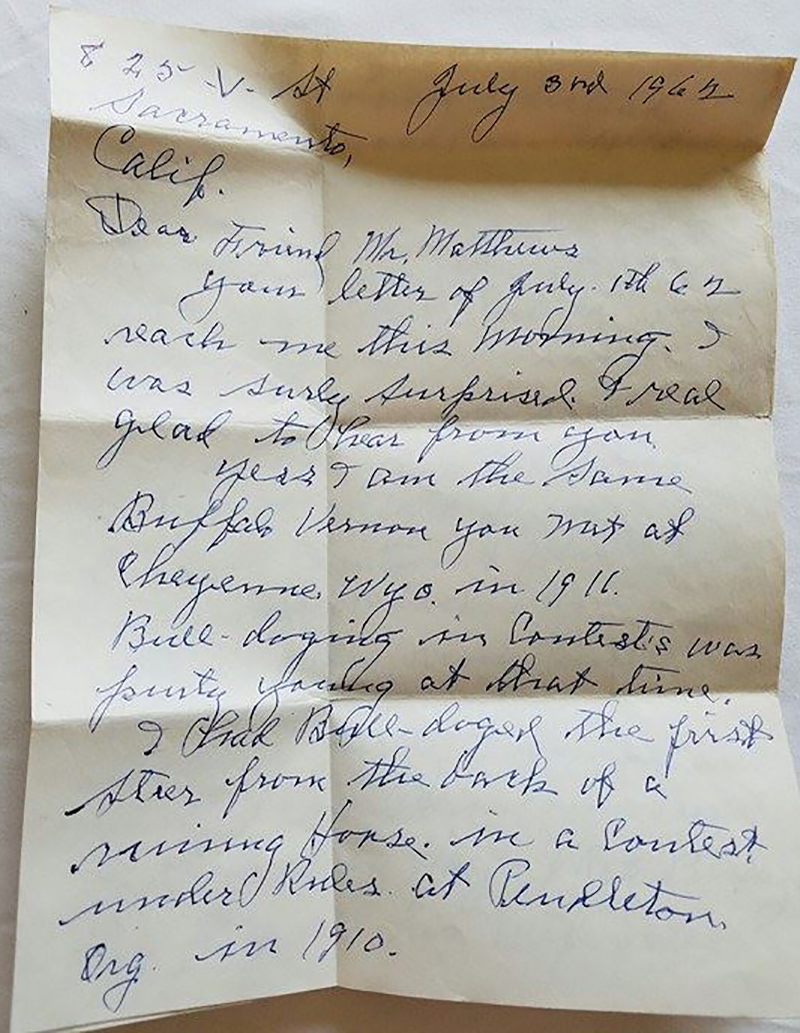 825 - V - St July 3rd 1962
Sacramento,
Calif.
Dear Friend Mr. Matthews
your letter of July. 1th 62
reach me this morning. I
was surly surprised. & real
glad to hear from you
yess I am the same
Buffalo Vernon you met at
Cheyenne. Wyo. in 1911.
Bull-doging in Contest's was
purty young at that time.
I had Bull-doged the first
steer from the back of a
running Horse. in a Contest
under Rules. at Pendleton
Org. in 1910.